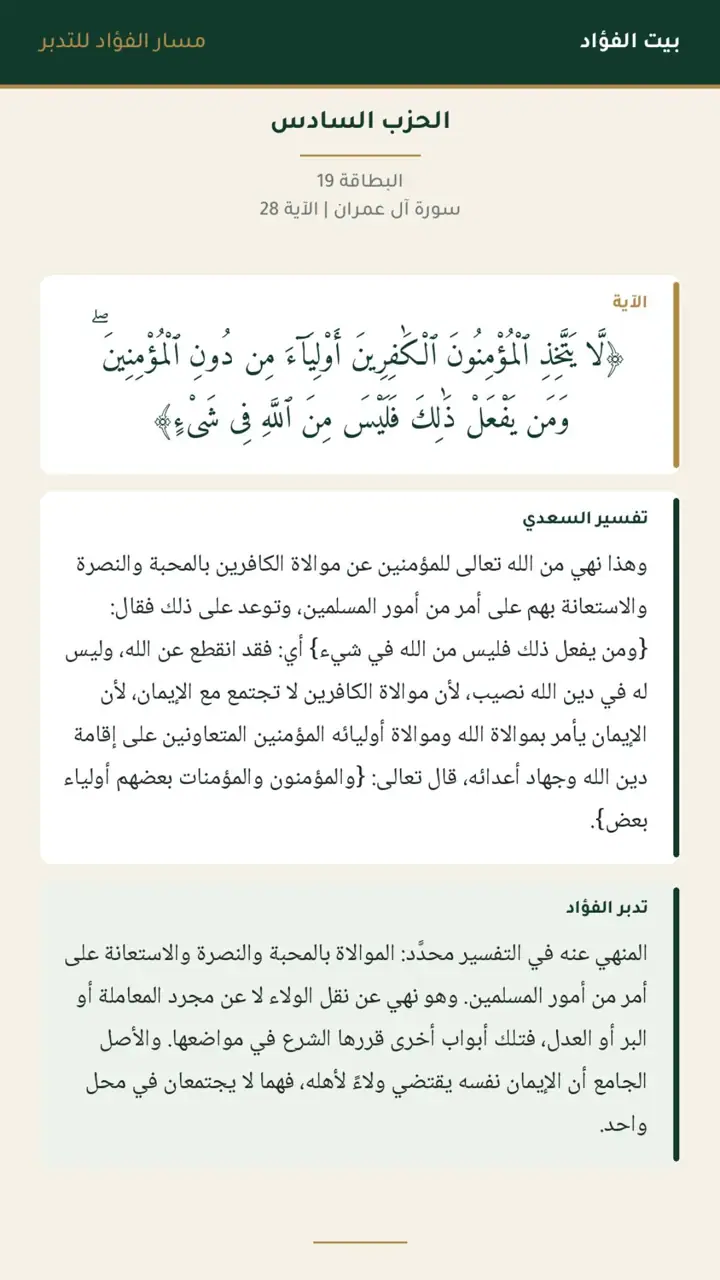 بيت الفؤاد
مسار الفؤاد للتدبر
الحزب السادس
البطاقة 19
سورة آل عمران | الآية 28
الآية
﴿لَّا يَتَّخِذِ ٱلْمُؤْمِنُونَ ٱلْكَٰفِرِينَ أَوْلِيَآءَ مِن دُونِ ٱلْمُؤْمِنِينَۖ
وَمَن يَفْعَلْ ذَٰلِكَ فَلَيْسَ مِنَ ٱللَّهِ فِى شَىْءٍ﴾
تفسير السعدي
وهذا نهي من الله تعالى للمؤمنين عن موالاة الكافرين بالمحبة والنصرة
والاستعانة بهم على أمر من أمور المسلمين، وتوعد على ذلك فقال:
{ومن يفعل ذلك فليس من الله في شيء} أي: فقد انقطع عن الله، وليس
له في دين الله نصيب، لأن موالاة الكافرين لا تجتمع مع الإيمان، لأن
الإيمان يأمر بموالاة الله وموالاة أوليائه المؤمنين المتعاونين على إقامة
دين الله وجهاد أعدائه، قال تعالى: {والمؤمنون والمؤمنات بعضهم أولياء
بعض}.
تدبر الفؤاد
المنهي عنه في التفسير محدَّد: الموالاة بالمحبة والنصرة والاستعانة على
أمر من أمور المسلمين. وهو نهي عن نقل الولاء لا عن مجرد المعاملة أو
البر أو العدل، فتلك أبواب أخرى قررها الشرع في مواضعها. والأصل
الجامع أن الإيمان نفسه يقتضي ولاءً لأهله، فهما لا يجتمعان في محل
واحد.